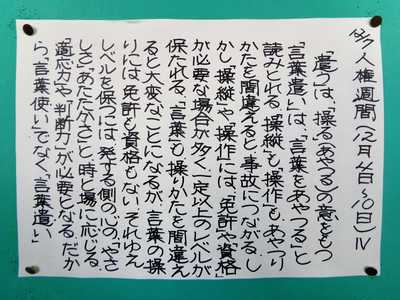 人権週間(12月4日~10日)Ⅳ
「遣う」は、「操る(あやつる)の意をもつ
「言葉遣い」は、「言葉をあやつる」と
読みとれる。「操縦」も「操作」も、あやつり
かたを間違えると、事故につながる。し
かし「操縦」や「操作」には、「免許や資格」
が必要な場合が多く、一定以上のレベルが
保たれる。「言葉」も操りかたを間違え
ると大変なことになるが、言葉の操
りには免許も資格もない。それゆえ
レベルを保つには、発する側の心の「やさ
しさ」「あたたかさ」と、時と場に応じる
「適応力」や「判断力」が必要となる。だか
ら、「言葉使い」でなく、「言葉遣い」